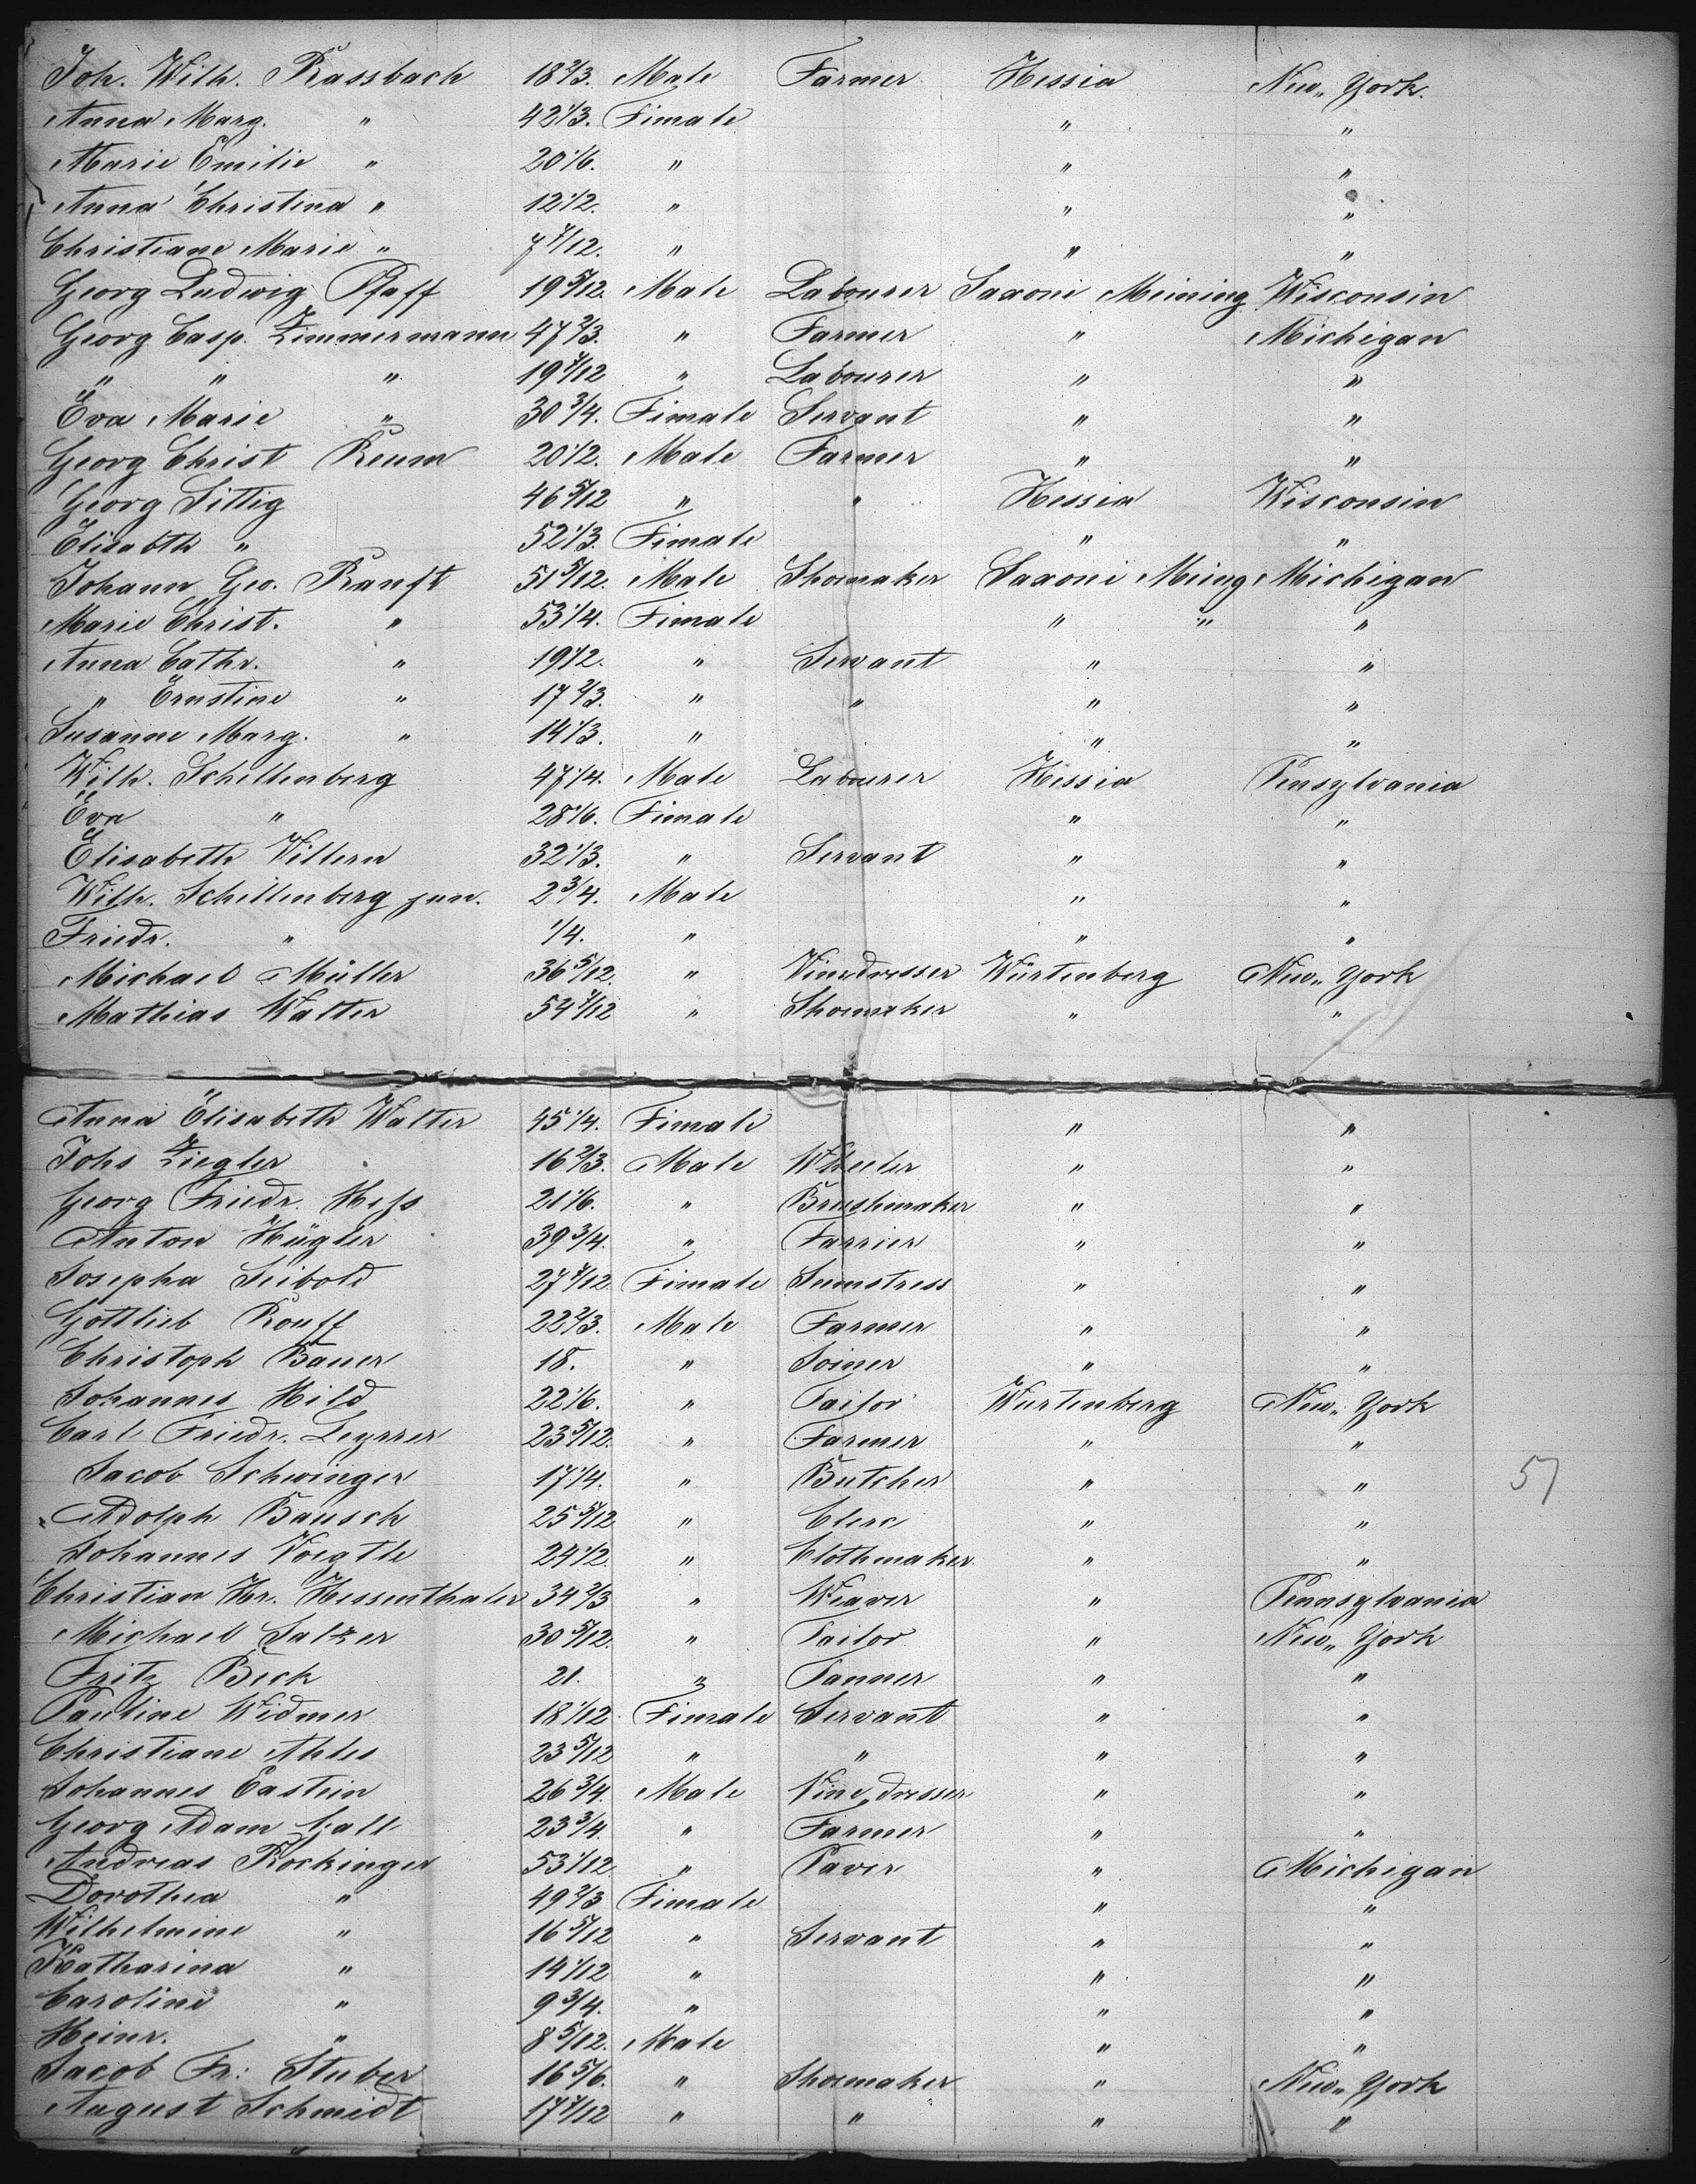 Joh. Wilh. Rassbach 18 2/3. Male Farmer Hessia New-York.
Anna Marg. " 42 1/3. Female " "
Marie Emilie " 20 1/6. " " "
Anna Christina " 12 1/2. " " "
Christiane Marie " 7 7/12. " " "
Georg Ludwig Pfaff 19 5/12. Male Labourer Saxoni Meining Wisconsin
Georg Casp. Zimmermann 47 2/3. " Farmer " Michigan
" " " 19 7/12 " Labourer " "
Eva Marie " 30 3/4. Female Servant " "
Georg Christ Reum 20 1/2. Male Farmer " "
Georg Sittig 46 5/12 " " Hessia Wisconsin
Elisabth " 52 1/3. Female " "
Johann Geo. Ranft 51 5/12. Male Shoemaker Saxoni Meing Michigan
Marie Christ. " 53 1/4. Female " " "
Anna Cathr. " 19 1/2. " Servant " "
" Ernstine " 17 2/3. " " " "
Susanne Marg. " 14 1/3. " " "
Wilh. Schellenberg 47 1/4. Male Labourer Hessia Pensylvania
Eva " 28 1/6. Female " "
Elisabeth Willern 32 1/3. " Servant " "
Wilh. Schellenberg jun. 2 3/4. Male " "
Friedr. " 1/4. " " "
Michael Müller 36 5/12. " Vinedresser Würtenberg New-York
Mathias Walter 54 7/12 " Shoemaker " "
Anna Elisabeth Walter 45 1/4. Female " "
Johs Ziegler 16 2/3. Male Wheeler " "
Georg Friedr. Hess 21 1/6. " Brushmaker " "
Anton Hügler 39 3/4. " Farrier " "
Josepha Seibold 27 7/12 Female Semstress " "
Gottlieb Rouff 22 2/3. Male Farmer " "
Christoph Bauer 18. " Joiner " "
Johannes Hild 22 1/6. " Tailor Würtenberg New-York
Carl Friedr. Leyrrer 23 5/12. " Farmer " "
Jacob Schwinger 17 1/4. " Butcher " "
Adolph Bausch 25 5/12 " Clerc " "
Johannes Voegtle 24 1/2. " Clothmaker " "
Christian Hr. Hessenthaler 34 2/3 " Weaver " Pennsylvania
Michael Salzer 30 5/12. " Tailor " New-York
Fritz Beck 21. " Tanner " "
Pauline Widmer 18 1/12 Female Servant " "
Christiane Ahles 23 5/12 " " " "
Johannes Eastein 26 3/4. Male Vine dresser " "
Georg Adam Gall 23 3/4. " Farmer " "
Andreas Rockinger 53 1/12. " Paver " Michigan
Dorothea " 49 2/3 Female " "
Wilhelmine " 16 5/12 " Servant " "
Katharina " 14 1/12 " " "
Caroline " 9 3/4. " " "
Heinr. " 8 5/12. Male " "
Jacob Fr: Stuber 16 5/6. " Shoemaker " New-York
August Schmidt 17 7/12 " " " "
57